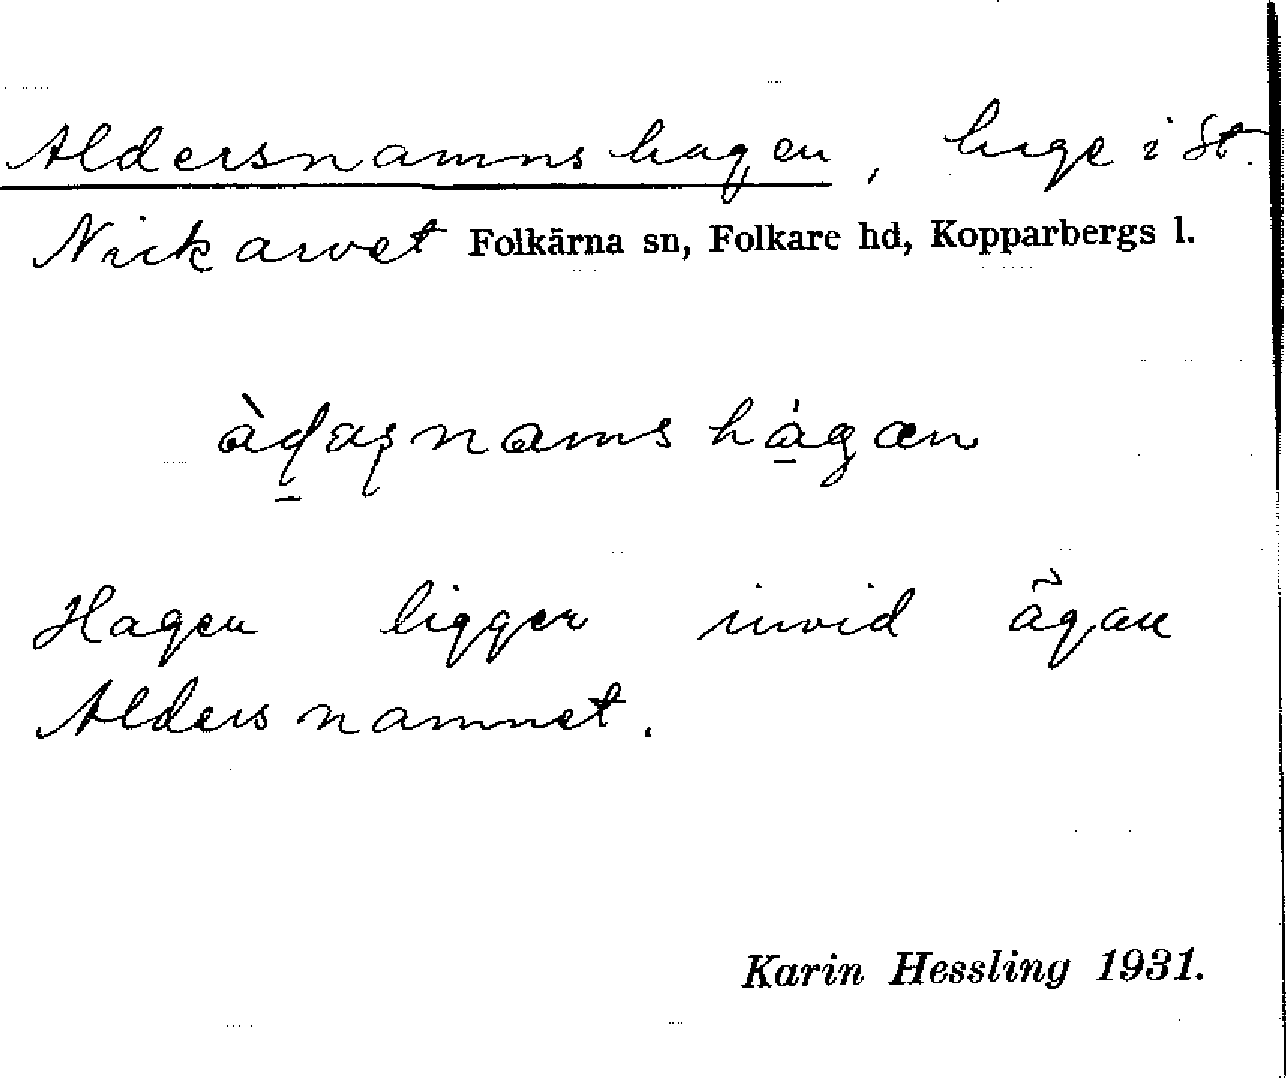 Aldersnamnshagen, hage i St.
Nickarvet Folkärna sn, Folkare hd, Kopparbergs l.
Hagen ligger invid ägan
Aldersnamnet.
Karin Hessling 1931.